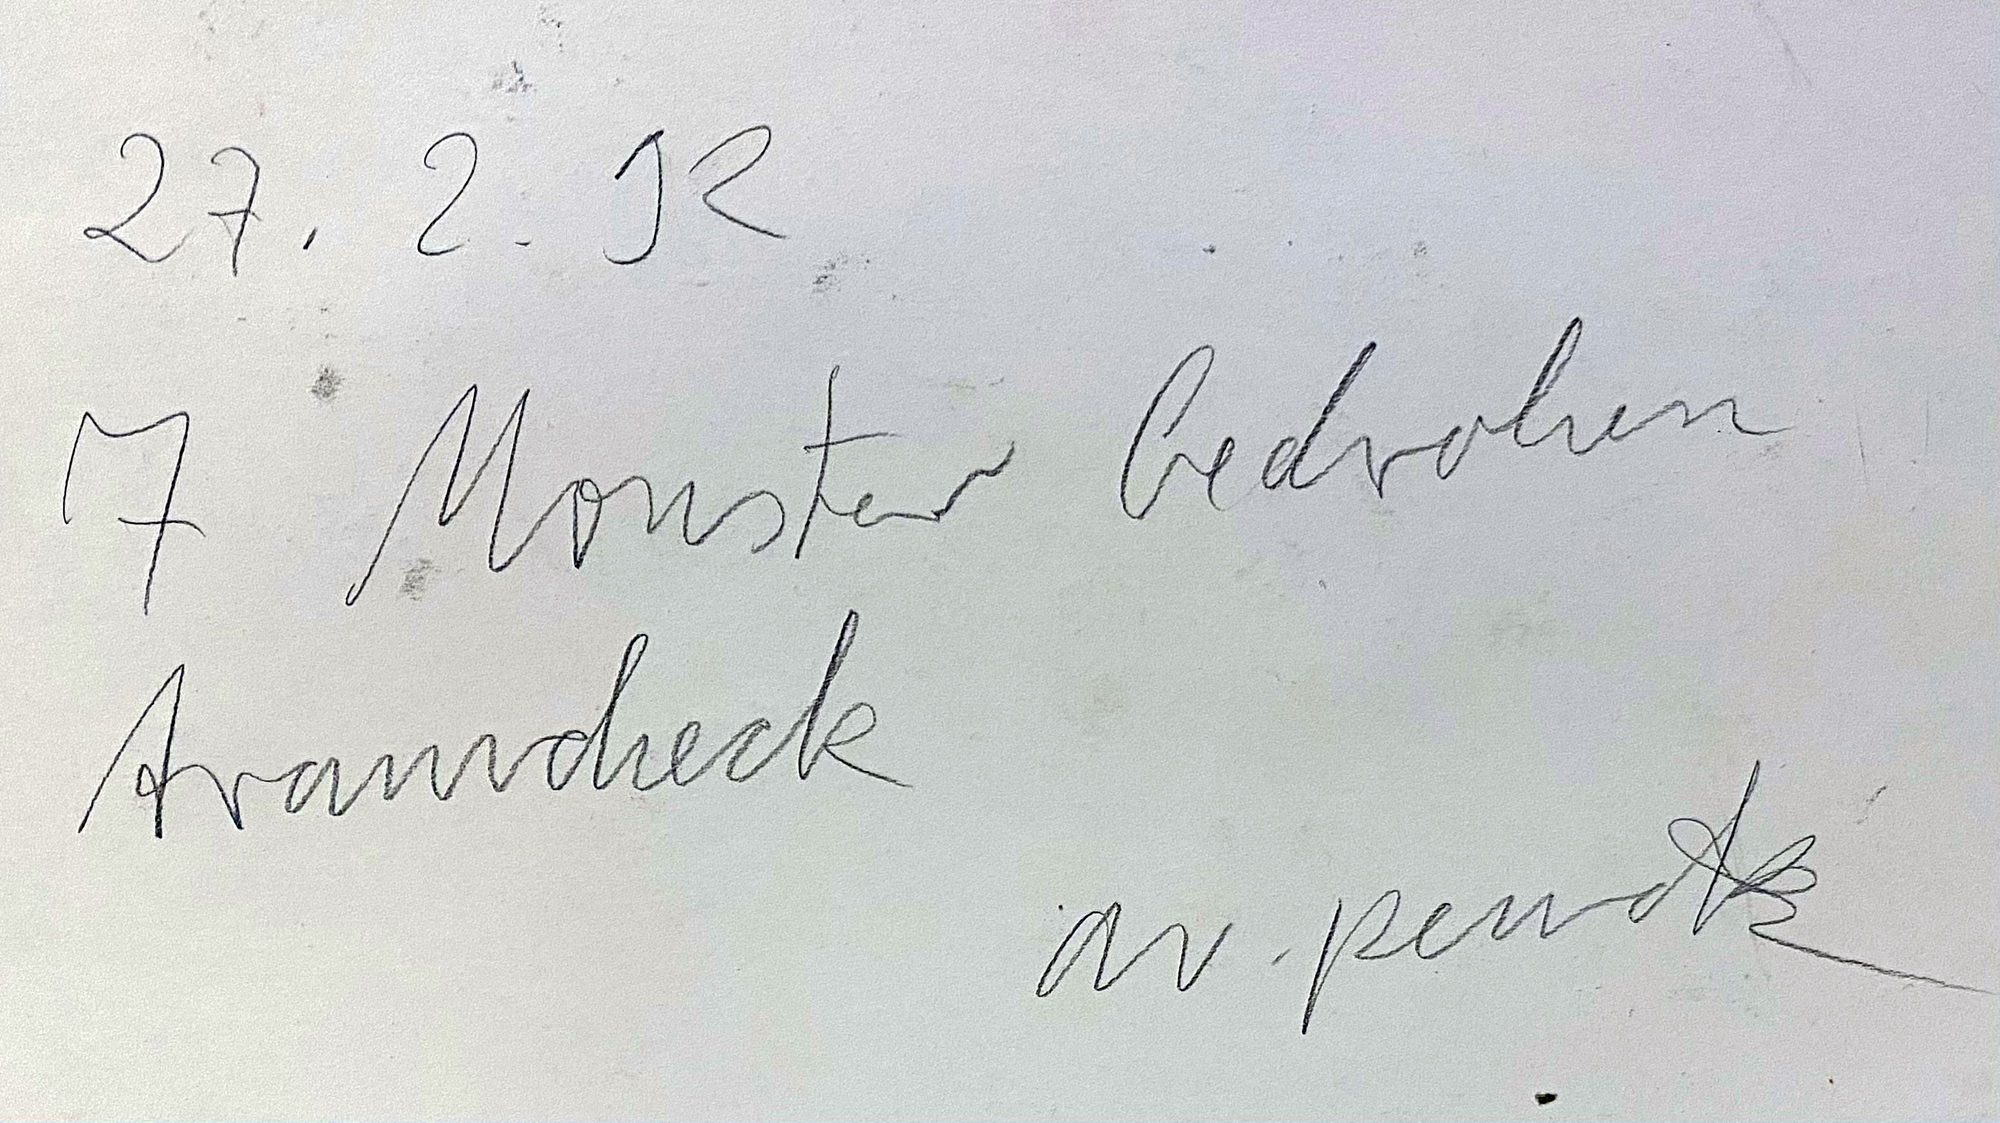 27. 2. 92
7 Monster bedrohen
Aramcheck
ar. penck